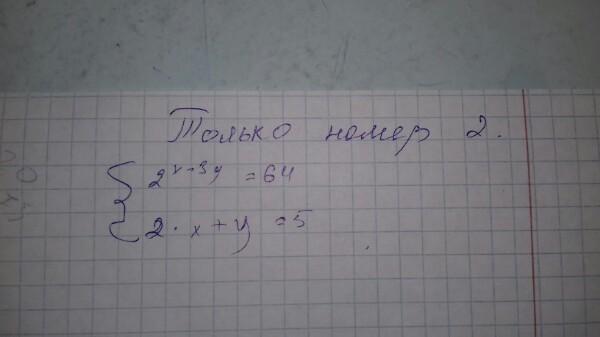 Только номер 2.
2^{x-3y} = 64
2 · x + y = 5